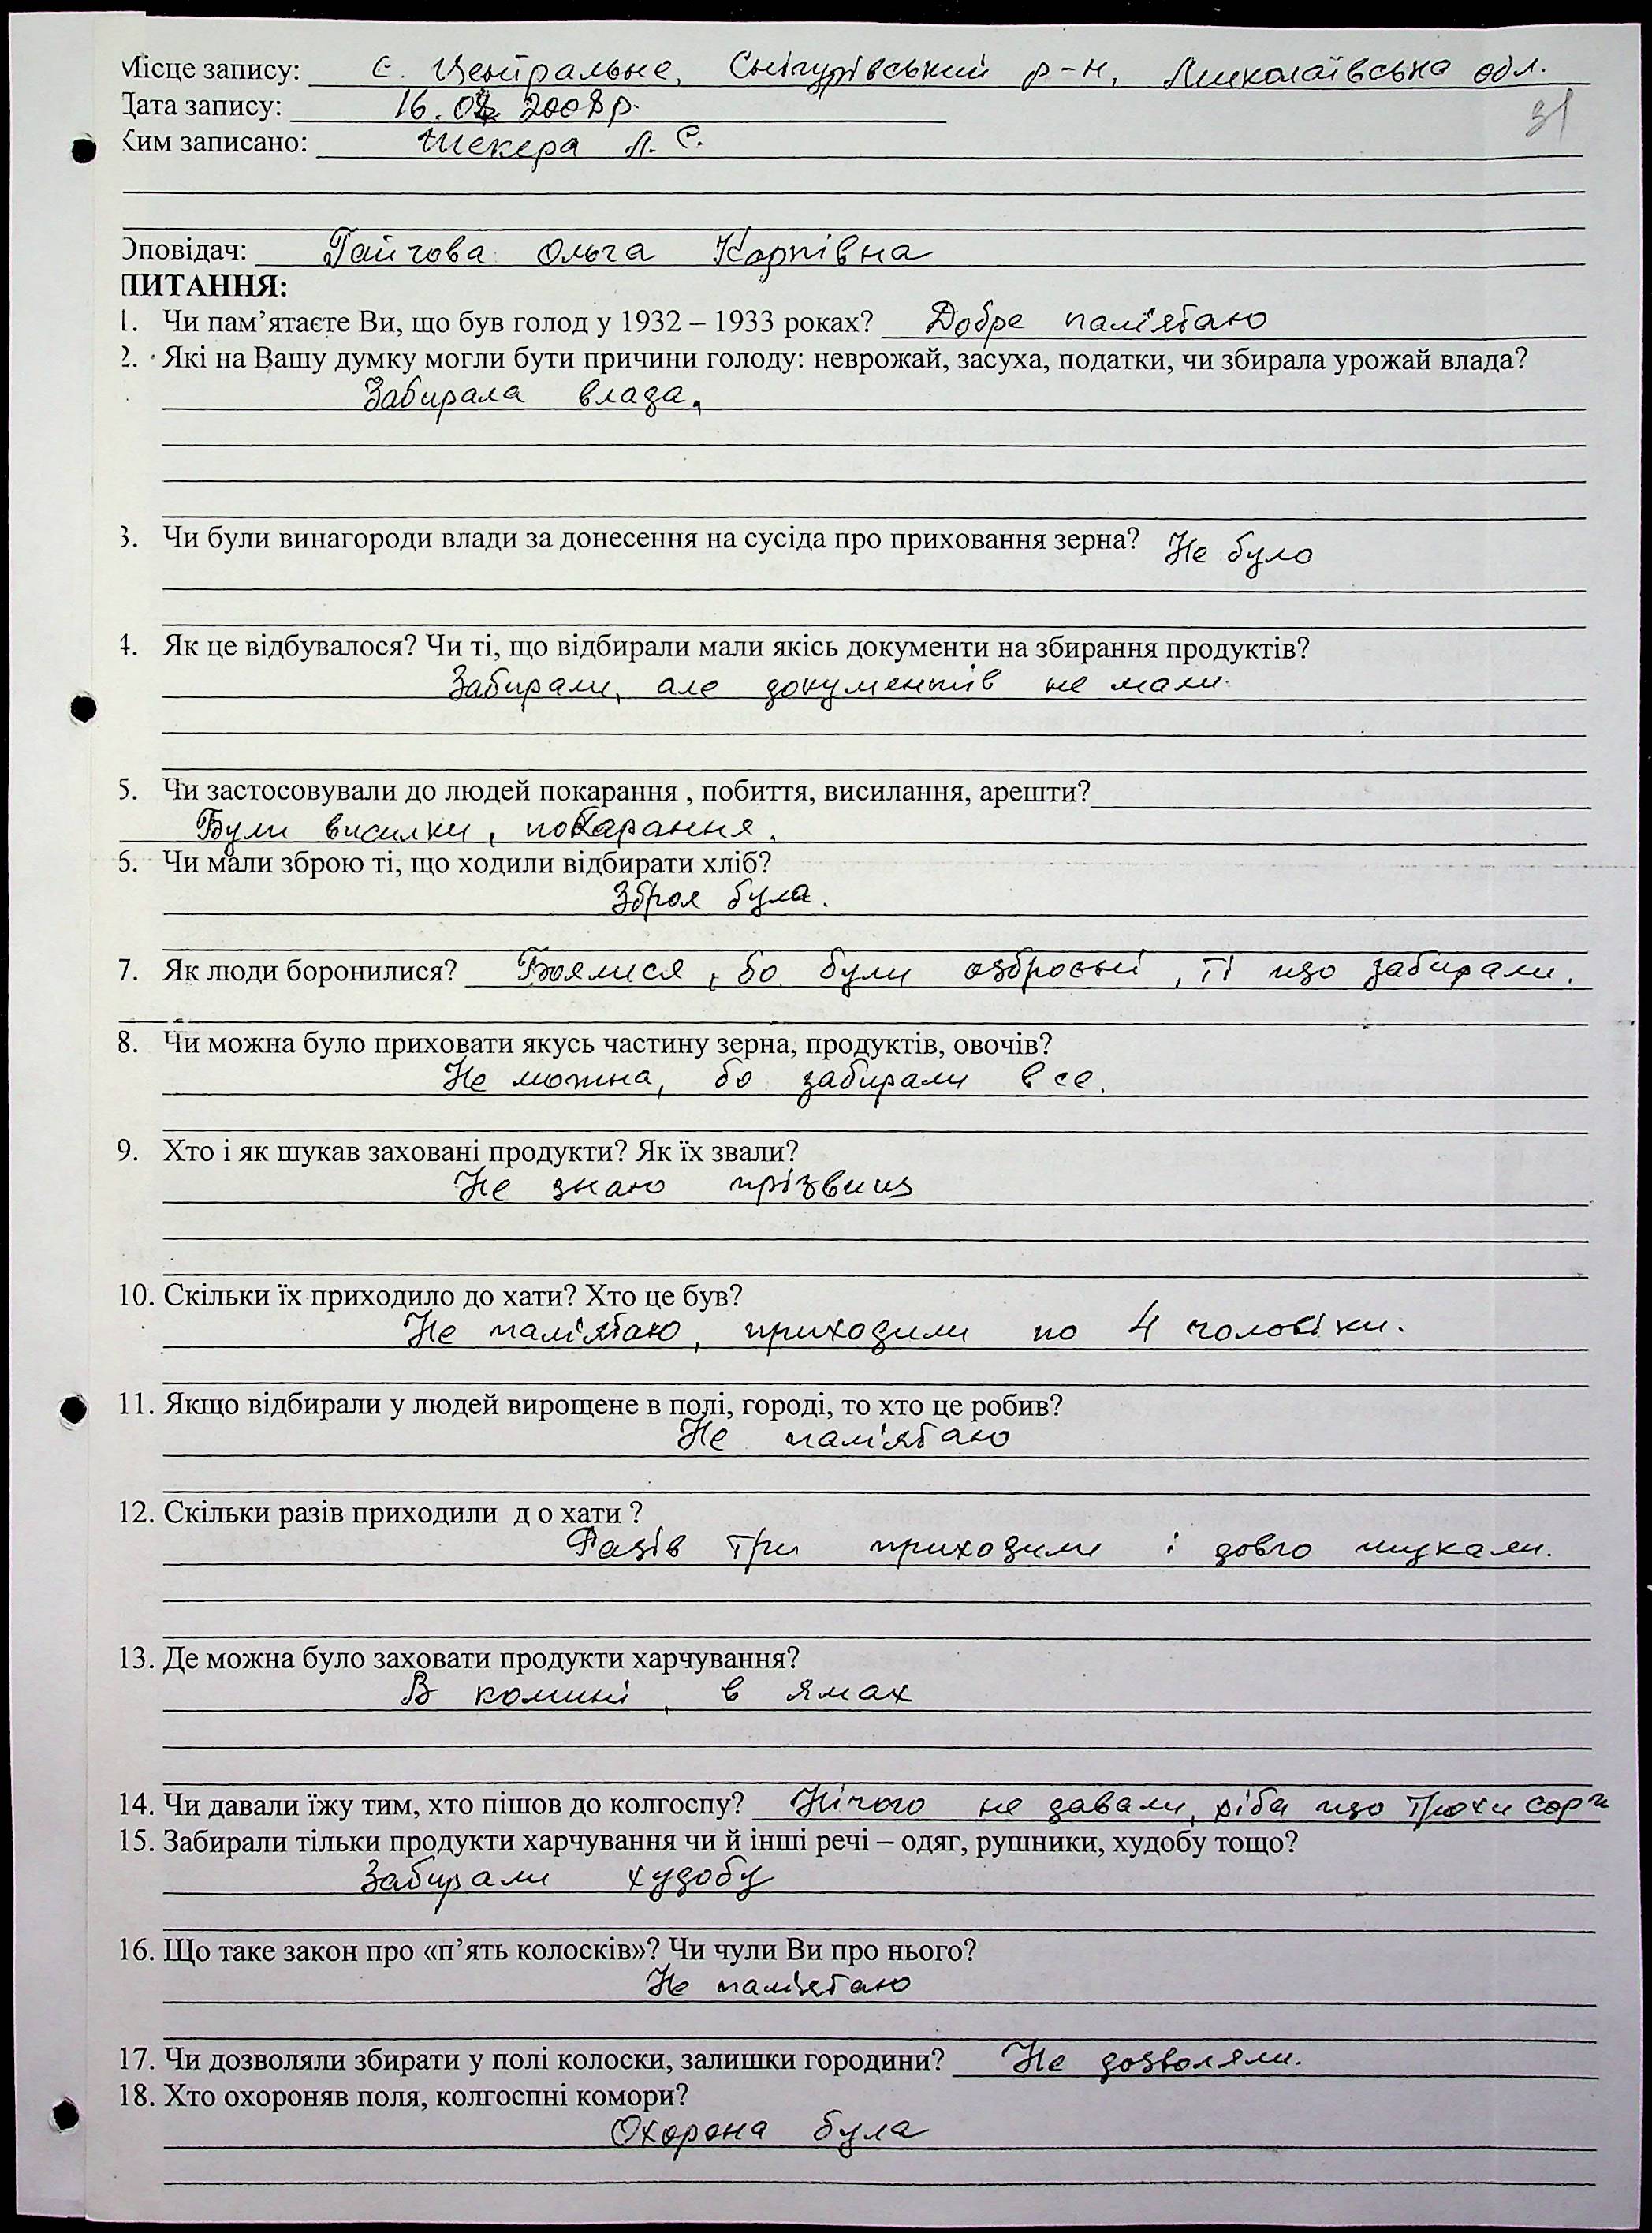 Місце запису: с. Центральне, Снігурівський р-н, Миколаївська обл.
Дата запису: 16.02 2008 р.
31
Ким записано: Шекера Л. С.
Оповідач: Гайчова Ольга Карпівна
ПИТАННЯ:
1. Чи пам’ятаєте Ви, що був голод у 1932 – 1933 роках? Добре пам'ятаю
2. Які на Вашу думку могли бути причини голоду: неврожай, засуха, податки, чи збирала урожай влада?
Забирала влада.
3. Чи були винагороди влади за донесення на сусіда про приховання зерна? Не було
4. Як це відбувалося? Чи ті, що відбирали мали якісь документи на збирання продуктів?
Забирали, але документів не мали.
5. Чи застосовували до людей покарання , побиття, висилання, арешти?
Були висилки, покарання.
6. Чи мали зброю ті, що ходили відбирати хліб?
Зброя була.
7. Як люди боронилися? Боялися, бо були озброєні, ті що забирали.
8. Чи можна було приховати якусь частину зерна, продуктів, овочів?
Не можна, бо забирали все.
9. Хто і як шукав заховані продукти? Як їх звали?
Не знаю прізвищ
10. Скільки їх приходило до хати? Хто це був?
Не пам'ятаю, приходили по 4 чоловіки.
11. Якщо відбирали у людей вирощене в полі, городі, то хто це робив?
Не пам'ятаю
12. Скільки разів приходили д о хати ?
Разів три приходили і довго шукали.
13. Де можна було заховати продукти харчування?
В комині, в ямах
14. Чи давали їжу тим, хто пішов до колгоспу? Нічого не давали, хіба що трохи
15. Забирали тільки продукти харчування чи й інші речі – одяг, рушники, худобу тощо?
Забирали худобу
16. Що таке закон про «п’ять колосків»? Чи чули Ви про нього?
Не пам'ятаю
17. Чи дозволяли збирати у полі колоски, залишки городини? Не дозволяли.
18. Хто охороняв поля, колгоспні комори?
Охорона була